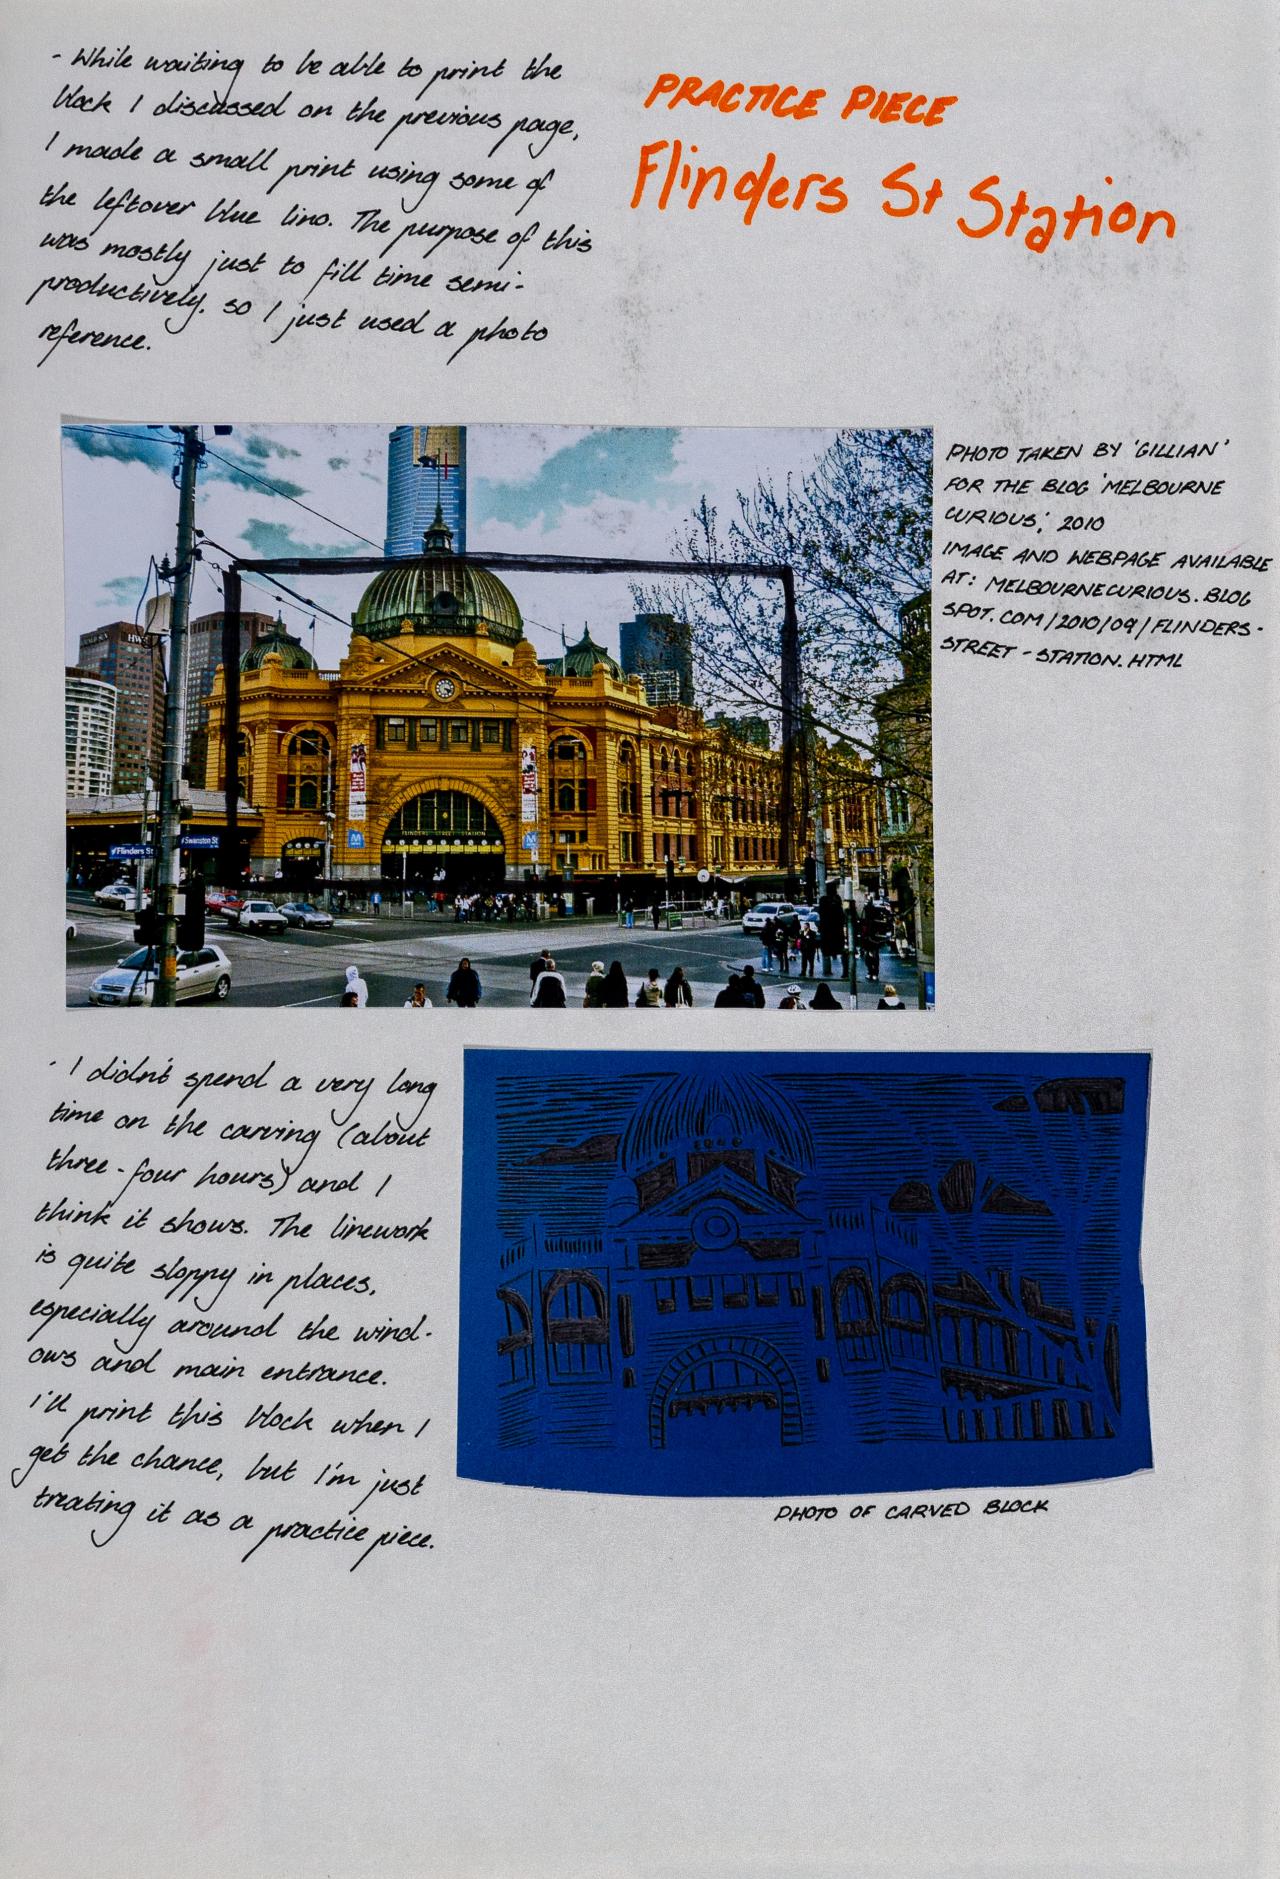 - While waiting to be able to print the
block I discussed on the previous page,
I made a small print using some of
the leftover blue lino. The purpose of this
was mostly just to fill time semi-
productively, so I just used a photo
reference.
PRACTICE PIECE
Flinders St Station
PHOTO TAKEN BY 'GILLIAN'
FOR THE BLOG 'MELBOURNE
CURIOUS', 2010
IMAGE AND WEBPAGE AVAILABLE
AT: MELBOURNECURIOUS.BLOG
SPOT.COM/2010/09/FLINDERS-
STREET-STATION.HTML
FLINDERS STREET STATION
Flinders St
Swanston St
- I didn't spend a very long
time on the carving (about
three-four hours) and I
think it shows. The linework
is quite sloppy in places,
especially around the wind-
ows and main entrance.
I'll print this block when I
get the chance, but I'm just
treating it as a practice piece.
PHOTO OF CARVED BLOCK